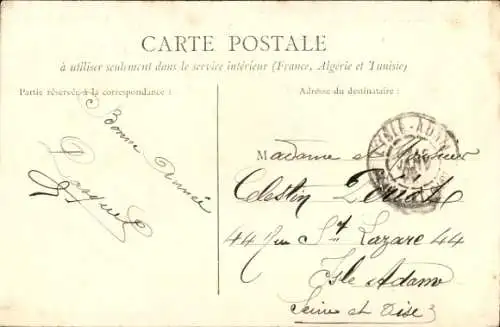 CARTE POSTALE
à utiliser seulement dans le service intérieur (France, Algérie et Tunisie)
Partie réservée à la correspondance :
Adresse du destinataire :
Bonne Année
Madame et Monsieur
Célestin
44 Rue St Lazare 44
Isle Adam
Seine et Oise